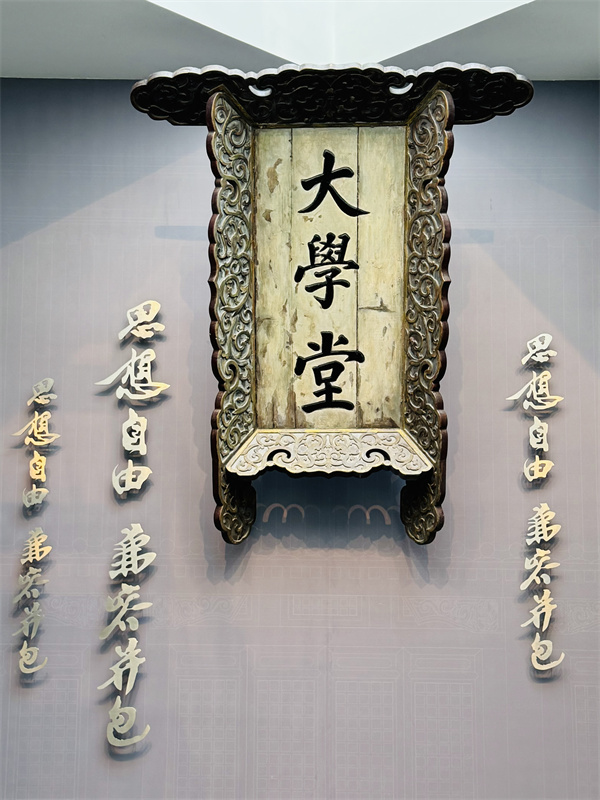 大學堂
思想自由 兼容并包
思想自由 兼容并包
思想自由 兼容并包